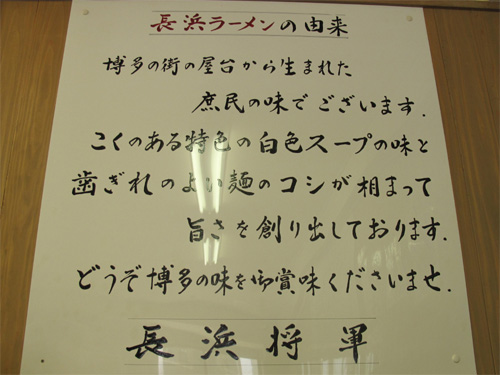 長浜ラーメンの由来
博多の街の屋台から生まれた
庶民の味でございます.
こくのある特色の白色スープの味と
歯ぎれのよい麺のコシが相まって
旨さを創り出しております.
どうぞ博多の味を御賞味くださいませ.
長浜将軍